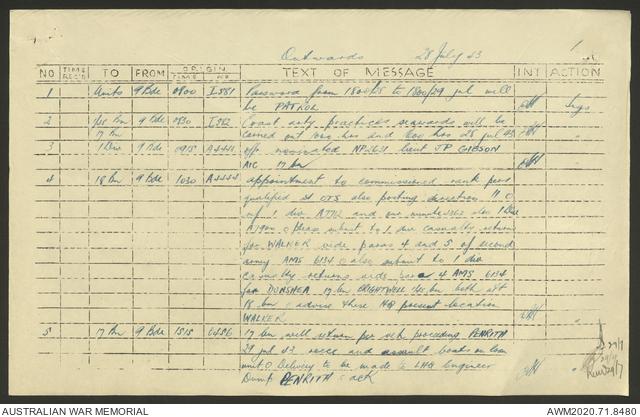 Outwards 28 July 43 1
NO TIME REC'D TO FROM ORIGIN TIME TEXT OF MESSAGE INT ACTION
1 Units 9 Bde 0800 I581 Password from 1800/28 to 1800/29 jul will
be PATROL
2 9 Bde 0830 I582 Coast arty practices seawards will be
17 Bn carried out hrs and hrs 28 jul 43
3 1 Div 9 Bde 0915 A4441 off nominated NP2631 Lieut JP GIBSON
AIC 17 bn
4 18 Bn 9 Bde 1030 A4444 appointment to commissioned rank pers
qualified at OTS also posting direction
of 1 div and our also 1 Div
please submit to 1 div casualty return
for WALKER vide paras 4 and 5 of second
army AMS 6134 also submit to 1 div
casualty returns vide para 4 AMS 6134
for DUNSHEA 17 bn BRIGHTWELL bn both att
18 bn advise these HQ present location
WALKER
5 17 Bn 9 Bde 1515 17 bn will return per veh proceeding PENRITH
29 jul 43 recce and assault boats on loan
unit O Delivery to be made to LHQ Engineer
Dump PENRITH ack
AUSTRALIAN WAR MEMORIAL AWM2020.71.8480